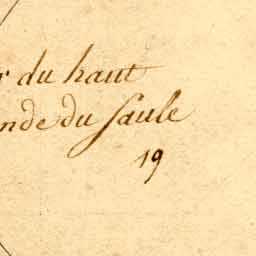 r du haut
nde du Saule
19